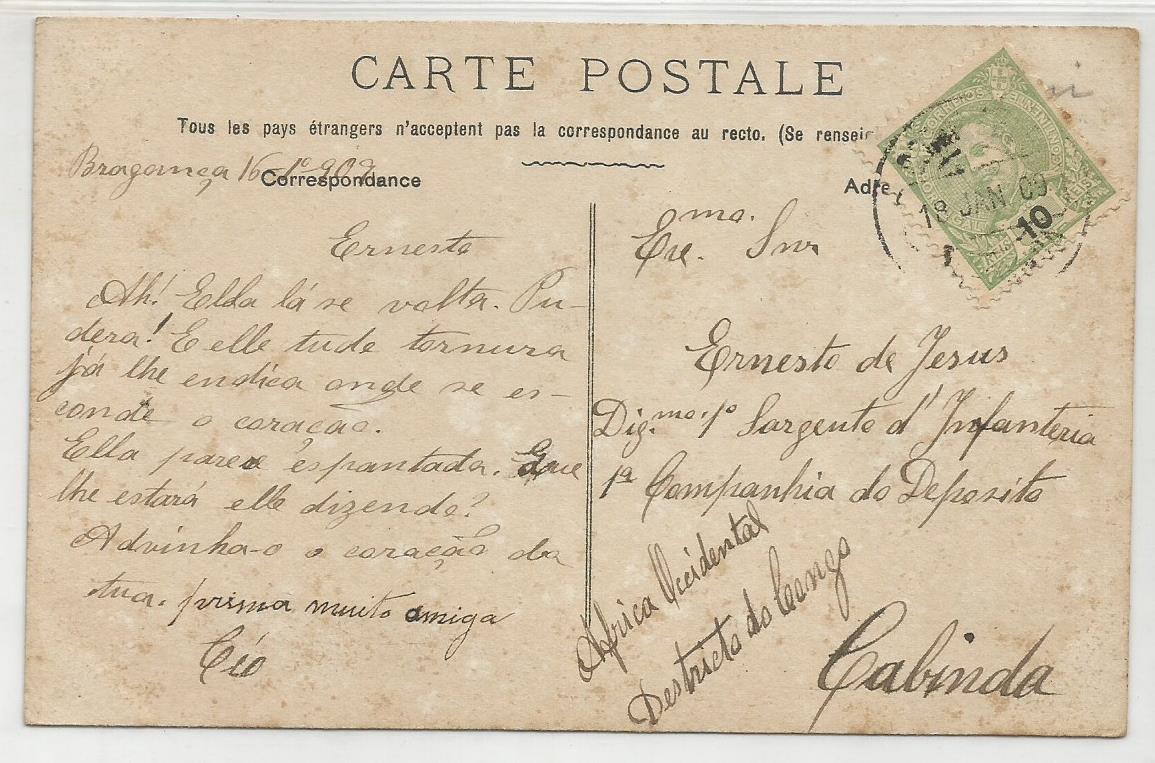 CARTE POSTALE
Tous les pays étrangers n'acceptent pas la correspondance au recto. (Se renseir
Bragança 16-1º-909
Correspondance
Ernesto
Ah! Elda lá se volta. Pu-
dera! E elle tude tornura
já lhe endica onde se es-
conde o coração.
Ella parece espantada. Que
lhe estará elle dizendo?
Advinha-o o coração da
tua. prima muito amiga
Ció
Adre
18 JAN 09
CORREIOS
REIS
10
REIS
Exe.mo. Snr
Ernesto de Jesus
Dig.mo. 1º Sargento d'Infanteria
1ª Companhia do Deposito
Africa Occidental
Destricto do Congo
Cabinda